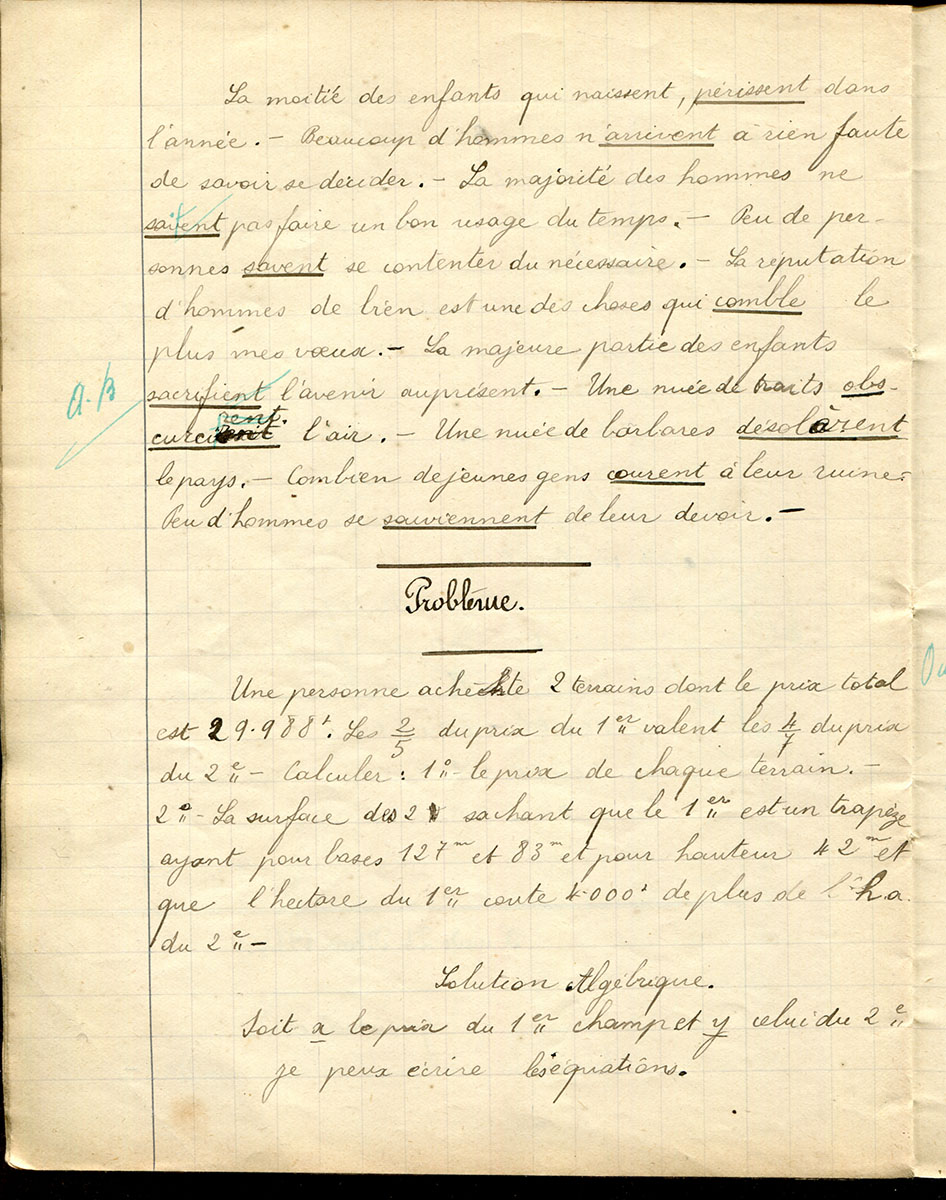 La moitié des enfants qui naissent, périssent dans
l'année. - Beaucoup d'hommes n'arrivent à rien faute
de savoir se décider. - La majorité des hommes ne
savent pas faire un bon usage du temps. - Peu de per-
sonnes savent se contenter du nécessaire. - La réputation
d'hommes de bien est une des choses qui comble le
plus mes vœux. - La majeure partie des enfants
a.B
sacrifient l'avenir au présent. - Une nuée de traits obs-
curcirent l'air. - Une nuée de barbares désolèrent
le pays. - Combien de jeunes gens courent à leur ruine.
Peu d'hommes se souviennent de leur devoir. -
Problème.
Une personne achète 2 terrains dont le prix total
est 29.988f. Les 2/5 du prix du 1er valent les 4/7 du prix
du 2e - Calculer : 1o - le prix de chaque terrain. -
2o - La surface des 2 sachant que le 1er est un trapèze
ayant pour bases 127m et 83m et pour hauteur 42m et
que l'hectare du 1er coute 4.000f de plus de l'h.a.
du 2e -
Solution Algébrique.
Soit x le prix du 1er champ et y celui du 2e
je peux écrire les équations.